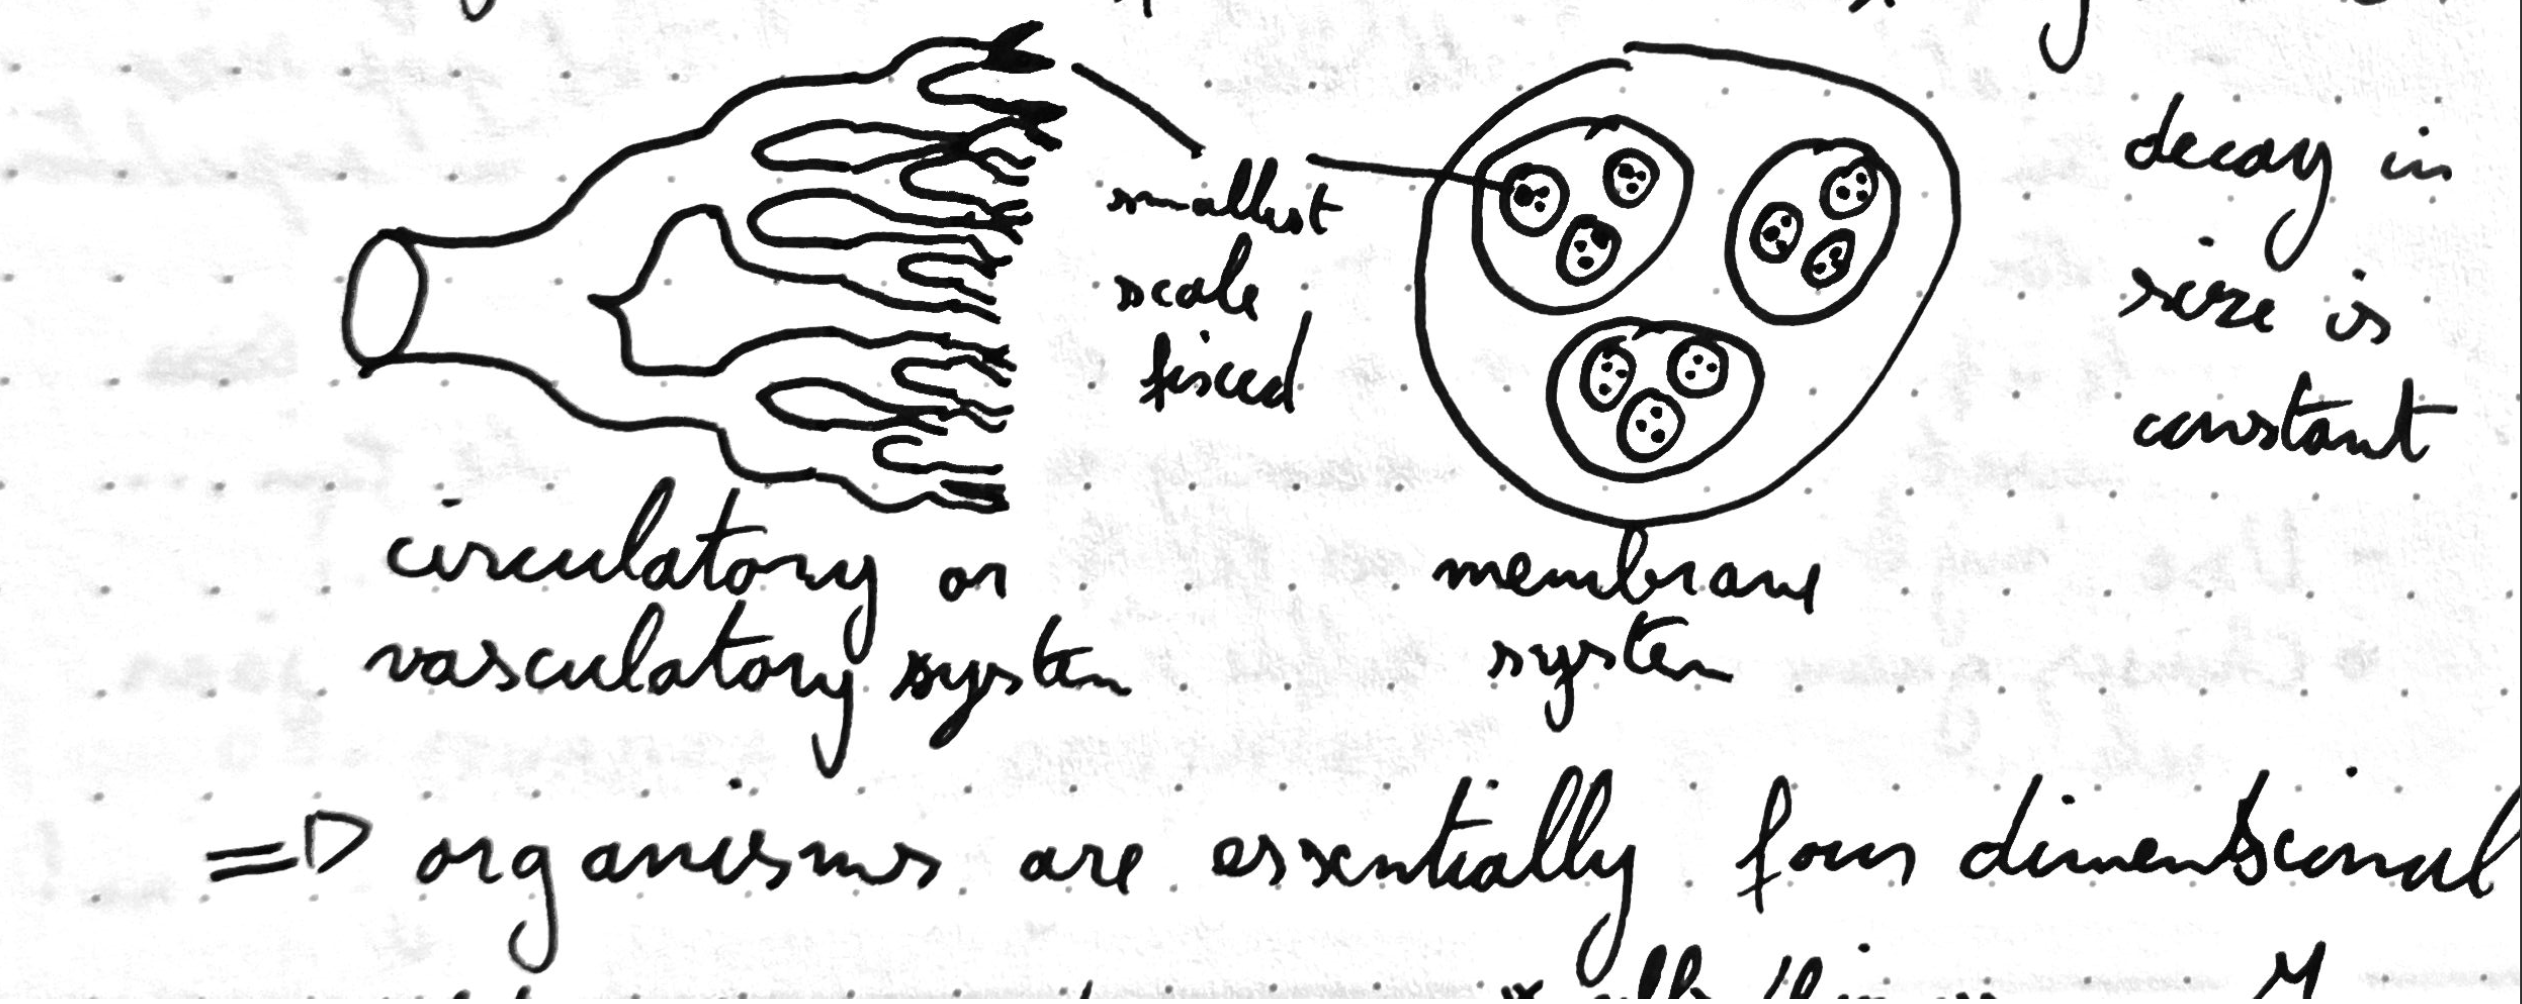 smallest
scale
fixed
decay in
size is
constant
circulatory or
vasculatory system
membrane
system
=> organisms are essentially four dimensional